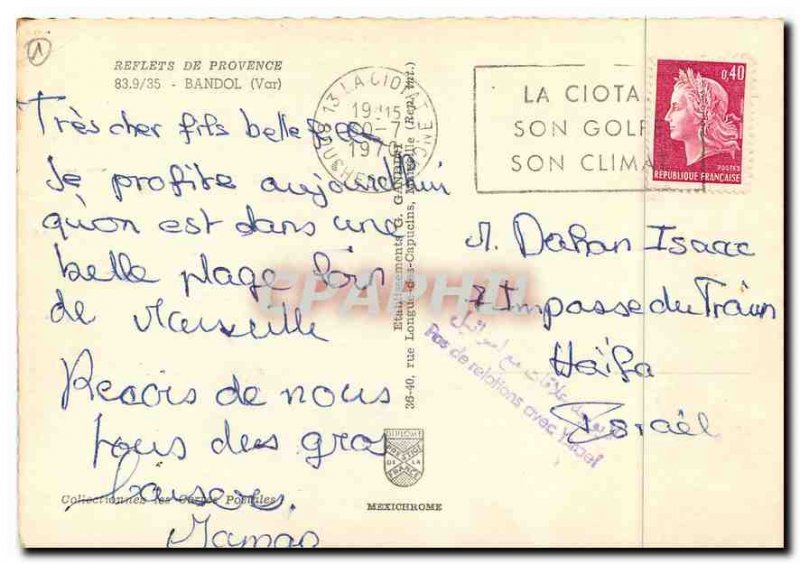 1
REFLETS DE PROVENCE
83.9/35 - BANDOL (Var)
Très cher fifs belle
Je profite aujourd'hui
qu'on est dans une
belle plage lois
de Marseille
Recois de nous
tous des gros
baisers.
Maman
Collectionnez les Cartes Postales
13 LA CIOTAT
19H15
20-7
1970
BOUCHES DU RHONE
LA CIOTA
SON GOLF
SON CLIMA
0,40
POSTES
REPUBLIQUE FRANÇAISE
Etablissements G. GANDINI
36-40, rue Longue-des-Capucins, Marseille (Rep. Int.)
M. Dahan Isaac
7 Impasse du Train
Haïfa
Israël
Pas de relations avec Israel
CPAPHIL
MEXICHROME